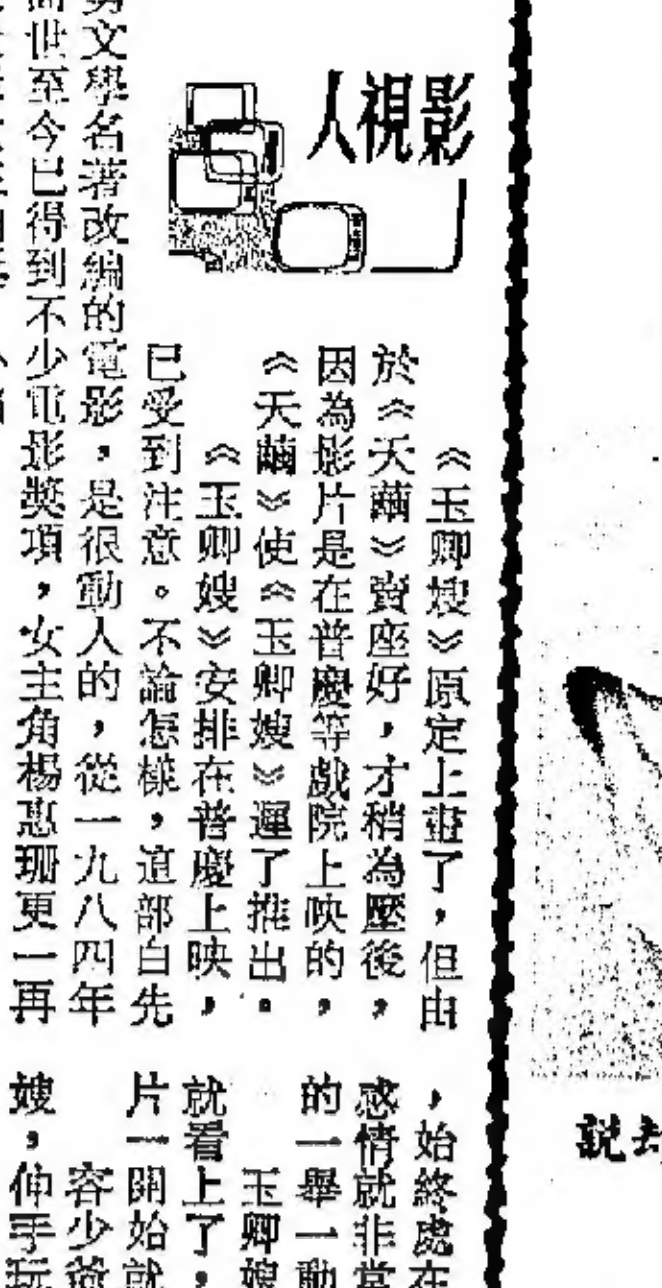 影視人
《玉卿嫂》原定上畫了，但由
於《天繭》賣座好，才稍為壓後，
因為影片是在普慶等戲院上映的，
《天繭》使《玉卿嫂》遲了推出。
《玉卿嫂》安排在普慶上映，
已受到注意。不論怎樣，這部白先
勇文學名著改編的電影，是很動人的，從一九八四年
世至今已得到不少電影獎項，女主角楊惠珊更一再
，始終處在
感情就非常
的一舉一動
玉卿嫂
就看上了，
片一開始就
容少爺
嫂，伸手玩
説